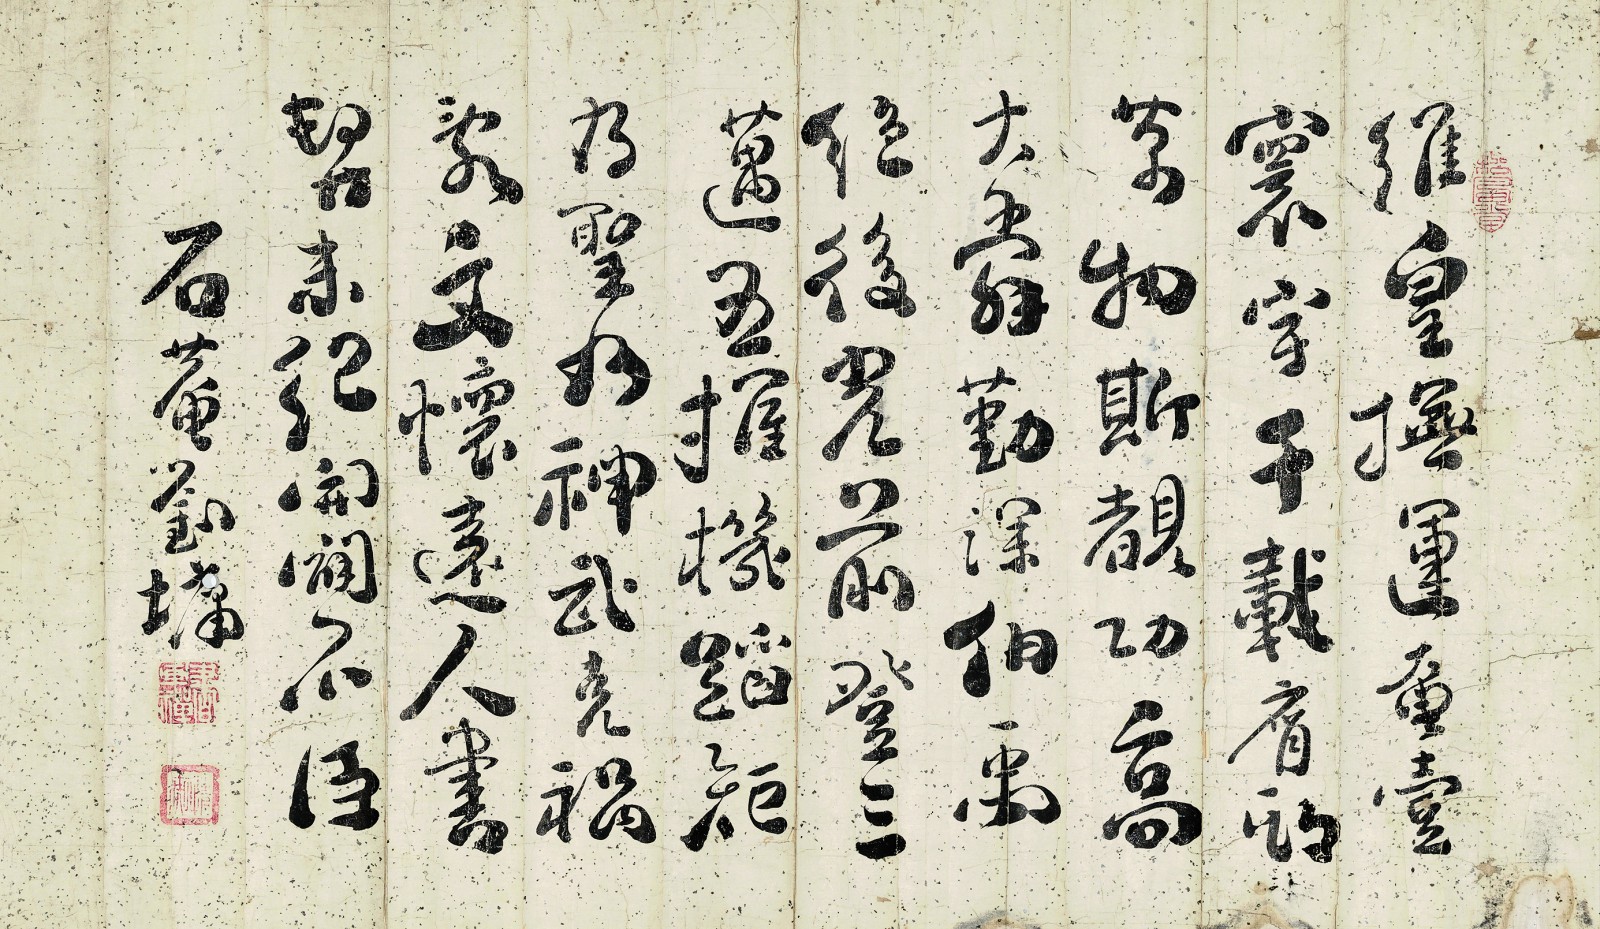 維皇撫運奄壹
寰宇千載膺期
萬物斯覩功高
大舜勤深伯禹
絕後光前登三
邁五握機蹈矩
乃聖乃神武克禍
亂文懷遠人書
契未紀開闢不臣
石菴劉墉